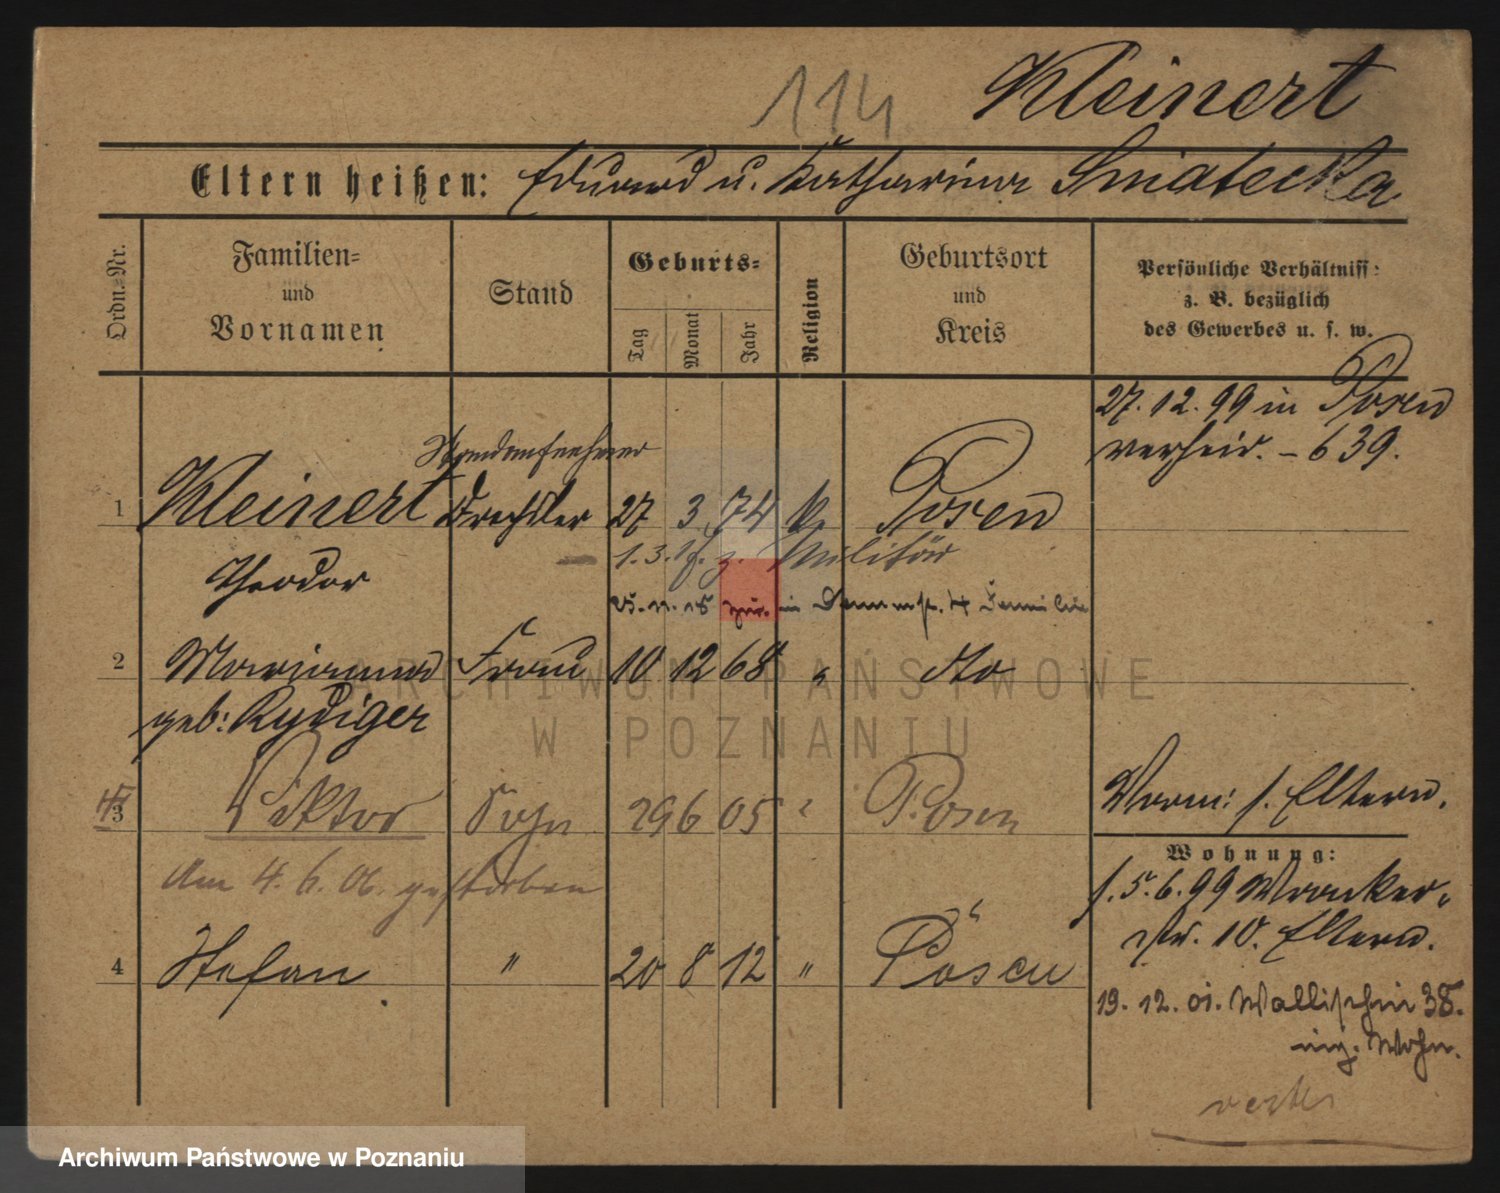 114 Kleinert
Eltern heißen: Eduard u. Katharina Smiatecka
Ordn.-Nr.
Familien-
und
Vornamen
Stand
Geburts-
Tag
Monat
Jahr
Religion
Geburtsort
und
Kreis
Persönliche Verhältniss:
z. B. bezüglich
des Gewerbes u. s. w.
27.12.99 in Posen
verheir. – 639.
1 Kleinert Drechsler 27 3 74 k. Posen
1.3. z. Militär
Theodor
25.11.18 zur. in Familie
2 Marianna Frau 10 12 68 " dto
geb: Rydiger
ARCHIWUM PAŃSTWOWE
W POZNANIU
3 Viktor Sohn 29 6 05 " Posen
Am 4.6.06. gestorben
Vorm: s. Eltern.
Wohnung:
s. 5.6.99 Wronker-
str. 10. Eltern.
4 Stefan " 20 8 12 " Posen
19.12.01. Wallischei 38.
eig. Wohn.
Archiwum Państwowe w Poznaniu